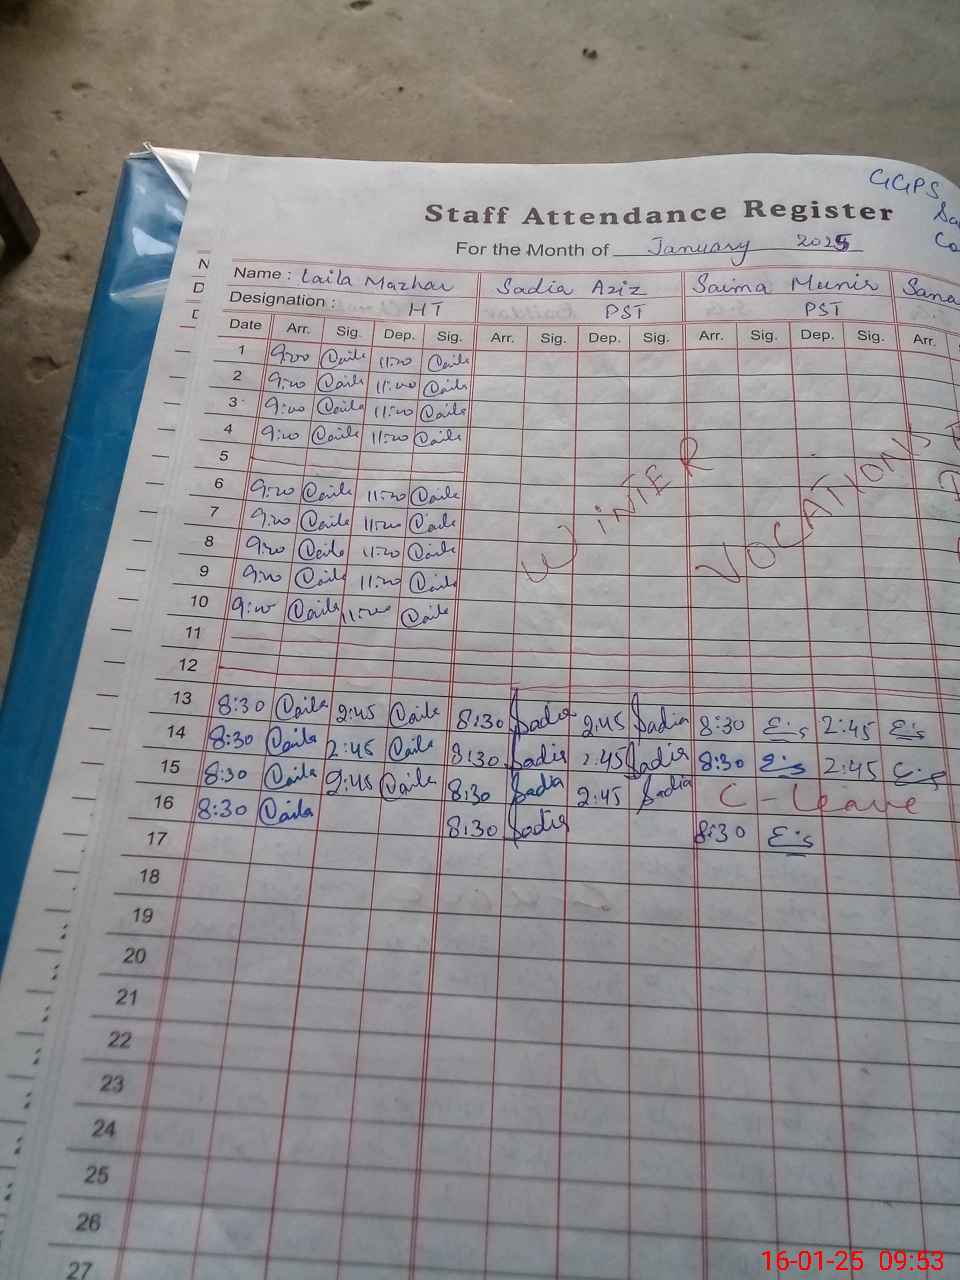 GGPS
Staff Attendance Register
For the Month of January 2025
Name : Laila Mazhar Sadia Aziz Saima Munir Sana
Designation : HT PST PST
Date Arr. Sig. Dep. Sig. Arr. Sig. Dep. Sig. Arr. Sig. Dep. Sig. Arr.
1 9:00 Laila 11:00 Laila
2 9:00 Laila 11:00 Laila
3 9:00 Laila 11:00 Laila
4 9:00 Laila 11:00 Laila
5
6 9:00 Laila 11:00 Laila
7 9:00 Laila 11:00 Laila
8 9:00 Laila 11:00 Laila
9 9:00 Laila 11:00 Laila
10 9:00 Laila 11:00 Laila
WiNTER VOCATIONS
11
12
13 8:30 Laila 2:45 Laila 8:30 Sadia 2:45 Sadia 8:30 2:45
14 8:30 Laila 2:45 Laila 8:30 Sadia 2:45 Sadia 8:30 2:45
15 8:30 Laila 2:45 Laila 8:30 Sadia 2:45 Sadia C - Leave
16 8:30 Laila 8:30 Sadia 8:30
17
18
19
20
21
22
23
24
25
26
27
16-01-25 09:53